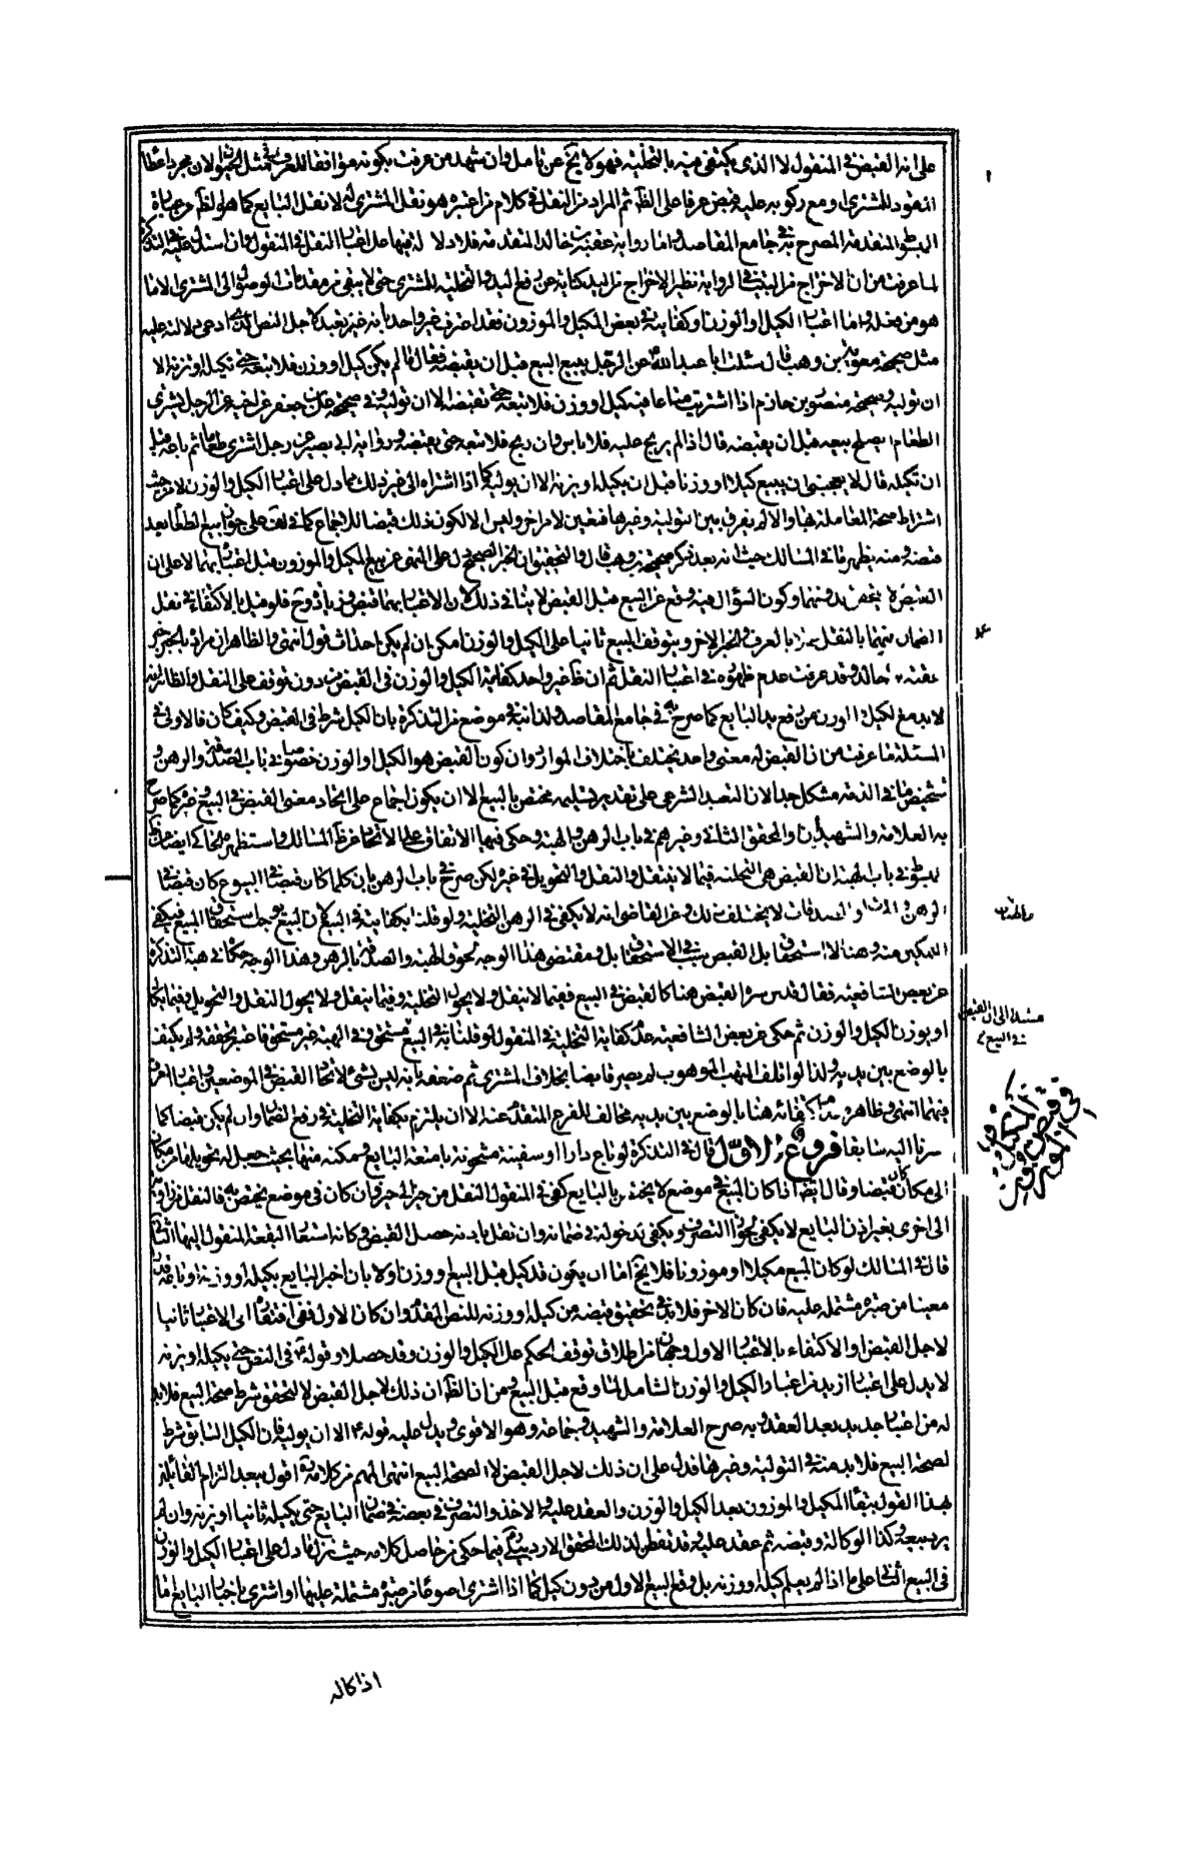 على انه القبض في المنقول لا الذي يكتفى فيه بالتخلية فهو لا يخ عن تامل وان شهد من عرفت بكونه موافقا للعرف في مثل الحيوان لان مجرد اعطاء
المقود للمشترى او مع ركوبه عليه قبض عرفا على الظ ثم المراد من النقل في كلام من اعتبره هو نقل المشترى له لا نقل البايع كما هو الظ من عبارة
المبسوط المتقدمة المصرح به في جامع المقاصد واما رواية عقبة بن خالد المتقدمة فلا دلالة فيها على اعتبار النقل في المنقول وان استدل عليه في التذكرة
لما عرفت من ان الاخراج من البيت في الرواية نظير الاخراج من اليد كناية عن رفع اليد والتخلية للمشترى حتى لا يبقى من مقدمات الوصول الى المشترى الا ما
هو من فعله واما اعتبار الكيل او الوزن او كفايته في بعض المكيل والموزون فقد اعترف غير واحد بانه تعبد لاجل النص الذى ادعى دلالته عليه
مثل صحيحة معوية بن وهب قال سئلت ابا عبد الله عن الرجل يبيع البيع قبل ان يقبضه فقال ما لم يكن كيل او وزن فلا تبعه حتى تكيله او تزنه الا
ان توليه وصحيحة منصور بن حازم اذا اشتريت متاعا فيه كيل او وزن فلا تبعه حتى تقبضه الا ان توليه وفي صحيحة على بن جعفر عن اخيه عن الرجل يشترى
الطعام ايصلح بيعه قبل ان يقبضه قال اذا لم يربح عليه فلا باس وان ربح فلا يبعه حتى يقبضه ورواية ابى بصير عن رجل اشترى طعاما ثم باعه قبل
ان تكيله قال لا يعجبنى ان يبيع كيلا او وزنا قبل ان يكيله او يزنه الا ان يوليه كما اذا اشتراه الى غير ذلك مما دل على اعتبار الكيل والوزن لا من حيث
اشتراط صحة المعاملة بها والا لم يفرق بين التولية وغيرها فتعين لامر اخر وليس الا لكون ذلك قبضا للاجماع على جواز بيع الطعام بعد
قبضه ومنه يظهر ما في المسالك حيث انه بعد ذكر صحيحة بن وهب قال والتحقيق ان الخبر الصحيح دل على النهى عن بيع المكيل والموزون قبل اعتباره بهما لا على ان
القبض لا يتحقق بدونهما وكون السؤال فيه وقع عن البيع قبل القبض لا ينافي ذلك لان الاعتبار بهما قبض وزيادة وح فلو قيل بالاكتفاء في نقل
الضمان فيهما بالنقل عملا بالعرف والخبر الاخر ويتوقف البيع ثانيا على الكيل والوزن امكن ان لم يكن احداث قول انتهى والظاهر ان مراده بالخبر خبر
عقبة بن خالد وقد عرفت عدم ظهوره في اعتبار النقل ثم ان ظ غير واحد كفاية الكيل والوزن في القبض من دون توقف على النقل والظ انه
لا بد مع الكيل والوزن من رفع يد البايع كما صرح به في جامع المقاصد ولذا نبه في موضع من التذكرة بان الكيل شرط في القبض وكيف كان فالاولى في
المسئلة ما عرفت من ان القبض له معنى واحد يختلف باختلاف الموارد وان كون القبض هو الكيل او الوزن خصوصا في باب الصدقة والرهن و
تشخيص ما في الذمة مشكل جدا لان التعبد الشرعى على تقدير تسليمه مختص بالبيع الا ان يكون اجماع على اتحاد معنى القبض في البيع وغيره كما صرح
به العلامة والشهيدان والمحقق الثاني وغيرهم في باب الرهن والهبة وحكى فيها الاتفاق على الاتحاد عن ظ المسالك واستظهر
المبسوط في باب الهبة ان القبض هي التخلية فيما لا ينتقل والنقل والتحويل في غيره لكن صرح في باب الرهن بان كلما كان قبضا في البيوع كان قبضا في
الرهن والهبات والصدقات لا يختلف ذلك وعن القاضى انه لا يكفى في الرهن التخلية ولو قلنا بكفايته في البيع لان البيع يوجب استحقاق المبيع فيكفى
التمكين منه وهنا لا استحقاق بل القبض سبب في الاستحقاق بل ومقتضى هذا الوجه لحوق الهبة والصدقة بالرهن وهذا الوجه حكاه في هبة التذكرة
عن بعض الشافعية فقال قدس سره القبض هنا كالقبض في البيع ففيما لا ينقل ولا يحول التخلية وفيما ينقل ويحول النقل والتحويل وفيما يكال
او يوزن الكيل والوزن ثم حكى عن بعض الشافعية عدم كفاية التخلية في المنقول لو قلنا به في البيع مستحق وفي الهبة غير مستحق فاعتبر تحققه ولم يكتف
بالوضع بين يديه ولذا لو اتلف المتهب الموهوب لم يصر قابضا بخلاف المشترى ثم ضعفه بانه ليس بشئ لاتحاد القبض في الموضعين واعتبار العرف
فيهما انتهى وظاهره عدم اكتفائه هنا بالوضع بين يديه مخالف للفرع المتقدم عنه الا ان يلتزم بكفاية التخلية في رفع الضمان وان لم يكن قبضا كما
اشرنا اليه سابقا فروع الاول قال في التذكرة لو باع دارا او سفينة مشحونة بامتعة البايع ومكنه منها بحيث جعل له تحويلها من مكان
الى مكان كان قبضا وقال ايضا اذا كان المبيع في موضع لا يختص بالبايع كفى في المنقول النقل من حيز الى حيز وان كان في موضع يختص به فالنقل من زاوية
الى اخرى بغير اذن البايع لا يكفى لجواز التصرف ويكفى لدخوله في ضمانه وان نقل باذنه حصل القبض وكانه استعار البقعة المنقول اليها الثانى
قال في المسالك لو كان المبيع مكيلا او موزونا فلا يخ اما ان يكون قد كيل قبل البيع او وزن اولا بان اخبر البايع بكيله او وزنه او باعه قدرا
معينا من صبرة مشتملة عليه فان كان الاخير فلا بد في تحقيق قبضه من كيله او وزنه للنص المتقدم وان كان الاول ففي افتقاره الى الاعتبار ثانيا
لاجل القبض او الاكتفاء بالاعتبار الاول وجهان من اطلاق توقف الحكم على الكيل والوزن وقد حصلا وقوله ع في النص حتى يكيله او يزنه
لا يدل على اعتبار ازيد من اعتبار الكيل والوزن الشامل لما وقع قبل البيع ومن ان الظ ان ذلك لاجل القبض لا لتحقق شرط صحة البيع فلا بد
له من اعتبار جديد بعد العقد وبه صرح العلامة والشهيد وجماعة وهو الاقوى ويدل عليه قوله ع الا ان يوليه فان الكيل السابق شرط
لصحة البيع فلا بد منه في التولية وغيرها فدل على ان ذلك لاجل القبض لا لصحة البيع انتهى المهم من كلامه اقول يبعد التزام القائلين
بهذا القول ببقاء المكيل والموزون بعد الكيل والوزن والعقد عليه والاخذ والتصرف في بعضه في ضمان البايع حتى يكيله ثانيا او يزنه وان لم
يرد بيعه وكذا لو كاله وقبضه ثم عقد عليه وقد تفطن لذلك المحقق الاردبيلى فيما حكى من حاصل كلامه حيث نزل ما دل على اعتبار الكيل والوزن
في البيع الثانى على ما اذا لم يعلم كيله او وزنه بل وقع البيع الاول من دون كيل كما اذا اشترى اصوعا من صبرة مشتملة عليها او اشترى باخبار البايع اما
والهبات
مستندا الى ان القبض
في البيع
في قبض المكيل والموزون
اذا كاله